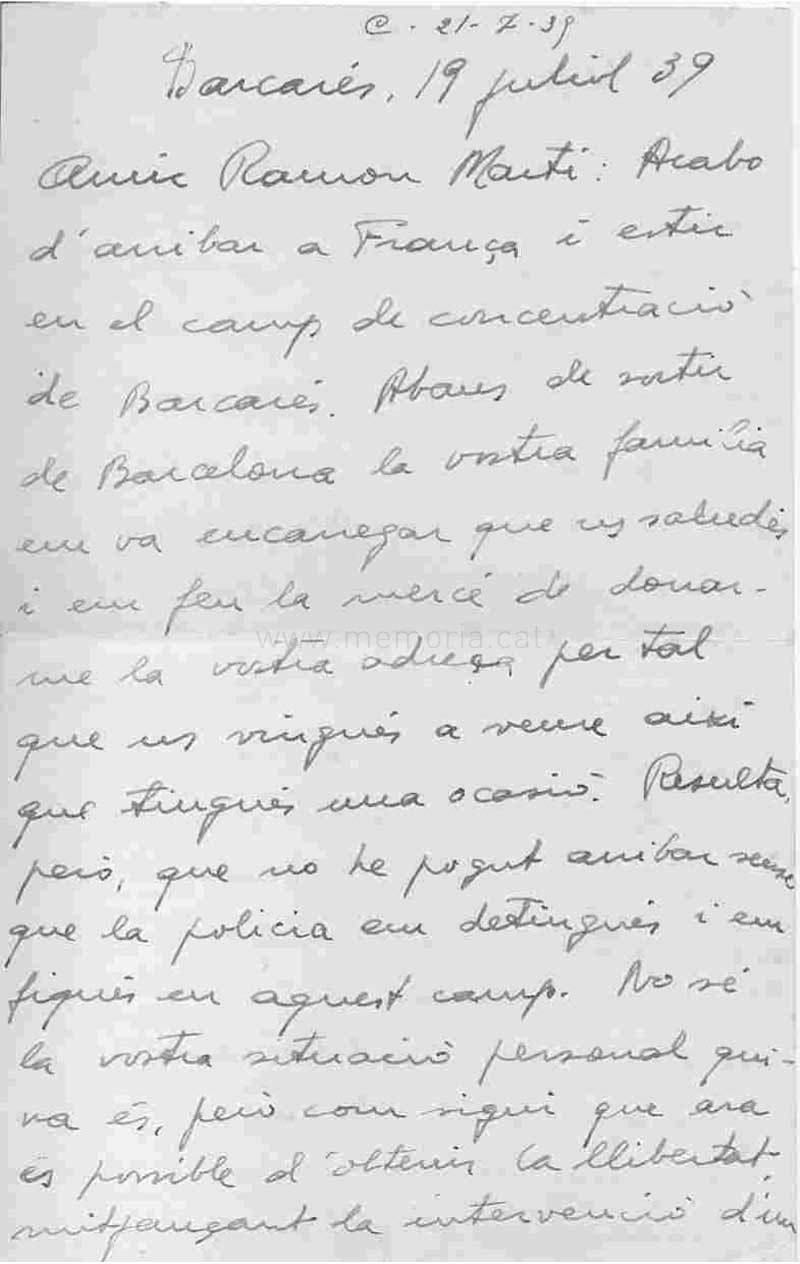 C - 21-7-39
Barcarés, 19 juliol 39
Amic Ramon Martí: Acabo
d'arribar a França i estic
en el camp de concentració
de Barcarés. Abans de sortir
de Barcelona la vostra família
em va encarregar que us saludés
i em feu la mercé de donar-
me la vostra adreça per tal
que us vingués a veure així
que tingués una ocasió. Resulta,
però, que no he pogut arribar sense
que la policia em detingués i em
fiqués en aquest camp. No sé
la vostra situació personal qui-
na és, però com sigui que ara
és possible d'obtenir la llibertat
mitjançant la intervenció d'un
www.memoria.cat